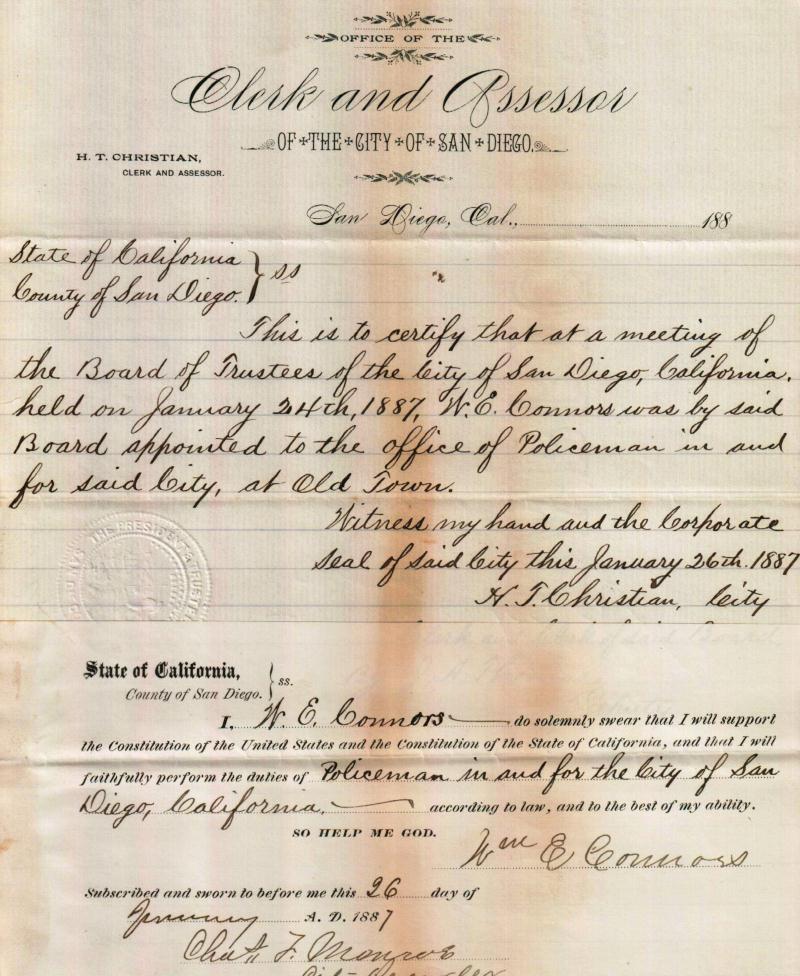 OFFICE OF THE
Clerk and Assessor
OF THE CITY OF SAN DIEGO.
H. T. CHRISTIAN,
CLERK AND ASSESSOR.
San Diego, Cal., 188
State of California
County of San Diego. } ss
This is to certify that at a meeting of
the Board of Trustees of the City of San Diego, California.
held on January 24th, 1887, W. E. Connors was by said
Board appointed to the office of Policeman in and
for said City, at Old Town.
Witness my hand and the Corporate
seal of said City this January 26th. 1887
H. T. Christian, City
THE PRESIDENT & TRUSTEES
State of California,
County of San Diego. } ss.
I, W. E. Connors do solemnly swear that I will support
the Constitution of the United States and the Constitution of the State of California, and that I will
faithfully perform the duties of Policeman in and for the City of San
Diego, California. according to law, and to the best of my ability.
SO HELP ME GOD.
Wm E Connors
Subscribed and sworn to before me this 26 day of
January A. D. 1887
Chas. F. Monroe